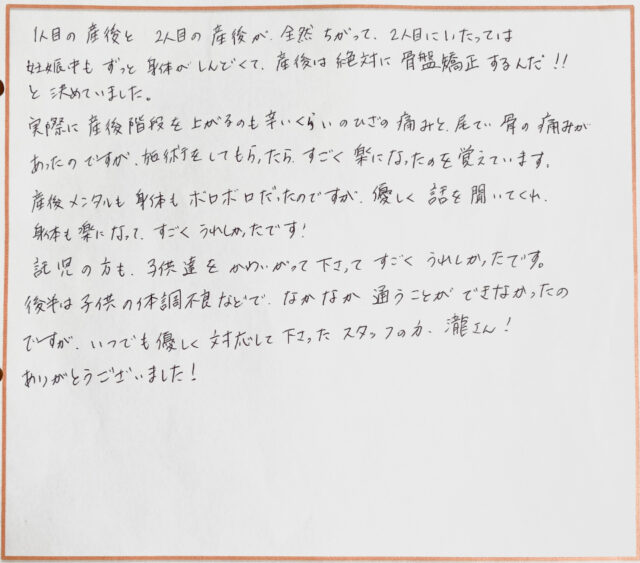 1人目の産後と 2人目の産後が、全然ちがって、2人目にいたっては
妊娠中も ずっと 身体が しんどくて、産後は 絶対に 骨盤矯正するんだ!!
と 決めていました。
実際に 産後階段を上がるのも辛いくらいのひざの痛みと、尾てい骨の痛みが
あったのですが、施術をしてもらったら、すごく 楽になったのを覚えています。
産後メンタルも 身体も ボロボロだったのですが、優しく 話を聞いてくれ、
身体も楽になって、すごく うれしかったです!
託児の方も、子供達を かわいがって下さって すごく うれしかったです。
後半は 子供の体調不良などで、なかなか 通うことが できなかったの
ですが、いつでも優しく 対応して 下さった スタッフの方、瀧さん!
ありがとうございました!